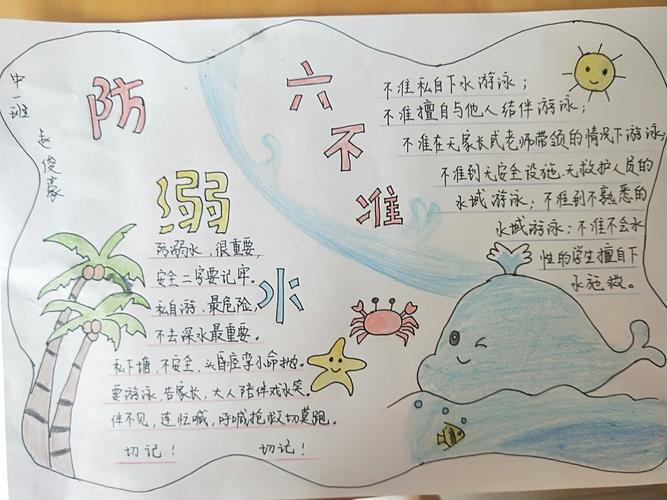 中一班
赵俊豪
防
溺
水
防溺水，很重要，
安全二字要记牢。
私自游，最危险，
不去深水最重要。
私下塘，不安全，
要游泳，告家长，大人陪伴戏水笑。
伴不见，连忙喊，呼喊抢救切莫跑。
切记！ 切记！
六
不
准
不准私自下水游泳；
不准擅自与他人结伴游泳；
不准在无家长或老师带领的情况下游泳；
不准到无安全设施、无救护人员的
水域游泳；不准到不熟悉的
水域游泳；不准不会水
性的学生擅自下
水施救。